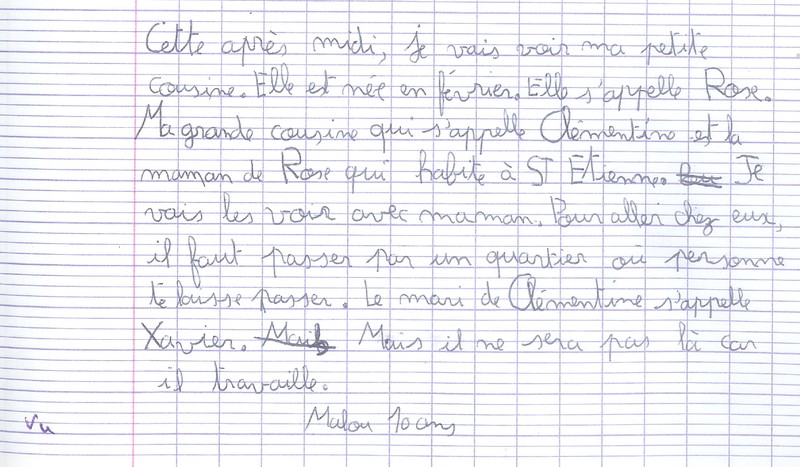 Cette après midi, je vais voir ma petite
cousine. Elle est née en février. Elle s'appelle Rose.
Ma grande cousine qui s'appelle Clémentine est la
maman de Rose qui habite à ST Etienne. Je
vais les voir avec maman. Pour aller chez eux,
il faut passer par un quartier où personne
te laisse passer. Le mari de Clémentine s'appelle
Xavier. Mais Mais il ne sera pas là car
il travaille.
Malou 10 ans
Vu